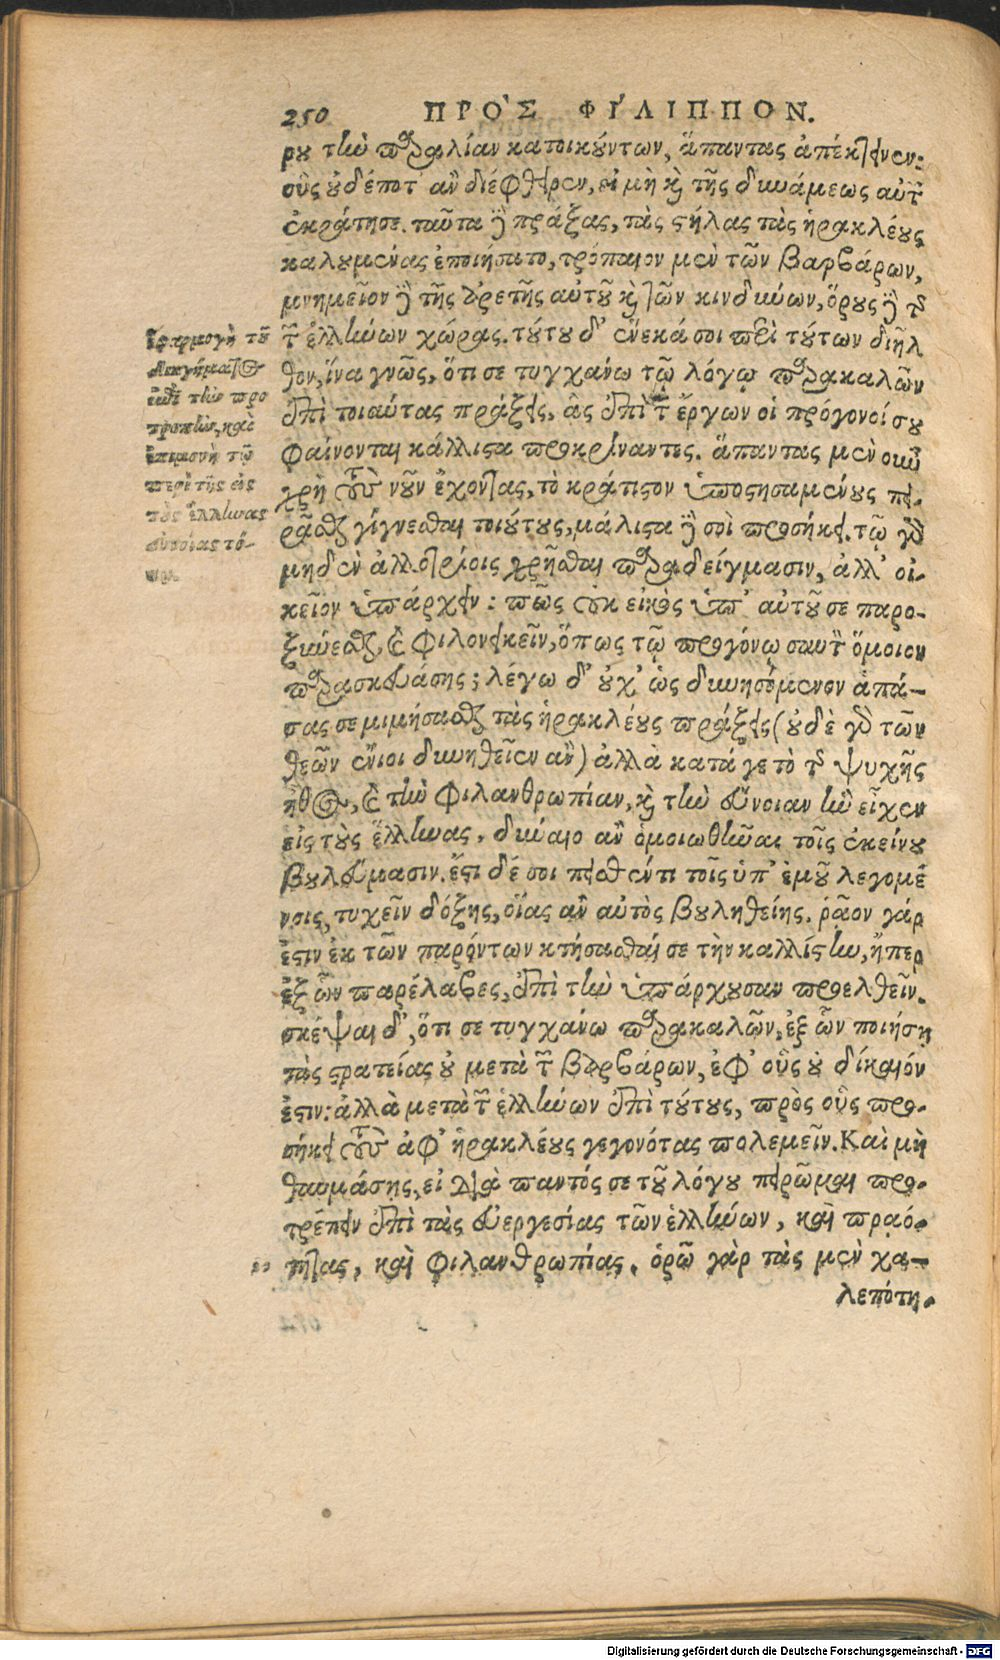 250 ΠΡΟ᾽Σ ΦΙ´ΛΙΠΠΟΝ.
ρου τὴν παραλίαν κατοικούντων, ἅπαντας ἀπέκτεινεν:
οὓς οὐδέποτ᾽ ἂν διέφθειρεν, εἰ μὴ καὶ τῆς δυνάμεως αὐτῶν
ἐκράτησε. ταῦτα δὲ πράξας, τὰς στήλας τὰς ἡρακλέους
καλουμένας ἐποιήσατο, τρόπαιον μὲν τῶν βαρβάρων,
μνημεῖον δὲ τῆς ἀρετῆς αὐτοῦ καὶ τῶν κινδύνων, ὅρους δὲ τῆς
τῶν ἑλλήνων χώρας. τούτου δ᾽ ἕνεκά σοι περὶ τούτων διῆλ
θον, ἵνα γνῷς, ὅτι σε τυγχάνω τῷ λόγῳ παρακαλῶν
ἐπὶ τοιαύτας πράξεις, ἃς ἐπὶ τῶν ἔργων οἱ πρόγονοί σου
φαίνονται κάλλιστα προκρίναντες. ἅπαντας μὲν οὖν
χρὴ τοὺς νοῦν ἔχοντας, τὸ κράτιστον ὑποστησαμένους πει-
ρᾶσθαι γίγνεσθαι τοιούτους, μάλιστα δὲ σοὶ προσήκει. τῷ γὰρ
μηδὲν ἀλλοτρίοις χρῆσθαι παραδείγμασιν, ἀλλ᾽ οἰ-
κεῖον ὑπάρχειν: πῶς οὐκ εἰκὸς ὑπ᾽ αὐτοῦ σε παρο-
ξύνεσθαι, καὶ φιλονεικεῖν, ὅπως τῷ προγόνῳ σαυτὸν ὅμοιον
παρασκευάσῃς; λέγω δ᾽ οὐχ᾽ ὡς δυνησόμενον ἁπά-
σας σε μιμήσασθαι τὰς ἡρακλέους πράξεις (οὐδὲ γὰρ τῶν
θεῶν ἔνιοι δυνηθεῖεν ἂν) ἀλλὰ κατά γε τὸ τῆς ψυχῆς
ἦθος, καὶ τὴν φιλανθρωπίαν, καὶ τὴν εὔνοιαν ἣν εἶχεν
εἰς τοὺς ἕλληνας, δύναιο ἂν ὁμοιωθῆναι τοῖς ἐκείνου
βουλεύμασιν. ἔστι δέ σοι πεισθέντι τοῖς ὑπ᾽ ἐμοῦ λεγομέ
νοις, τυχεῖν δόξης, οἵας ἂν αὐτὸς βουληθείης. ῥᾷον γάρ
ἐστιν ἐκ τῶν παρόντων κτήσασθαί σε τὴν καλλίστην, ἤπερ
ἐξ ὧν παρέλαβες, ἐπὶ τὴν ὑπάρχουσαν προελθεῖν.
σκέψαι δ᾽, ὅτι σε τυγχάνω παρακαλῶν, ἐξ ὧν ποιήσῃ
τὰς στρατείας οὐ μετὰ τῶν βαρβάρων, ἐφ᾽ οὓς οὐ δίκαιόν
ἐστιν: ἀλλὰ μετὰ τῶν ἑλλήνων ἐπὶ τούτους, πρὸς οὓς προ-
σήκει τοὺς ἀφ᾽ ἡρακλέους γεγονότας πολεμεῖν. Καὶ μὴ
θαυμάσῃς, εἰ διὰ παντός σε τοῦ λόγου πειρῶμαι προ-
τρέπειν ἐπὶ τὰς εὐεργεσίας τῶν ἑλλήνων, καὶ πραό-
τητας, καὶ φιλανθρωπίας. ὁρῶ γὰρ τὰς μὲν χα-
λεπότη-
ἐφαρμογὴ τοῦ
διηγήματος
ἐπὶ τὴν προ
τροπὴν, καὶ
ἐπιμονὴ τῷ
περὶ τῆς εἰς
τοὺς ἕλληνας
εὐνοίας τό-
πῳ.
Digitalisierung gefördert durch die Deutsche Forschungsgemeinschaft - DFG